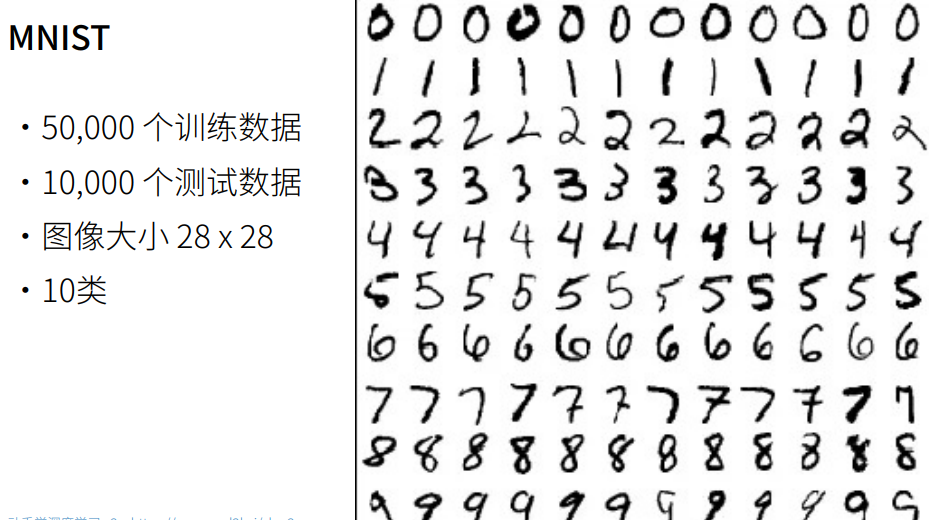 MNIST
• 50,000 个训练数据
• 10,000 个测试数据
• 图像大小 28 x 28
• 10类
0 0 0 0 0 0 0 0 0 0 0 0
1 1 1 1 1 1 1 1 1 1 1 1
2 2 2 2 2 2 2 2 2 2 2 2
3 3 3 3 3 3 3 3 3 3 3 3
4 4 4 4 4 4 4 4 4 4 4 4
5 5 5 5 5 5 5 5 5 5 5 5
6 6 6 6 6 6 6 6 6 6 6 6
7 7 7 7 7 7 7 7 7 7 7 7
8 8 8 8 8 8 8 8 8 8 8 8
9 9 9 9 9 9 9 9 9 9 9 9